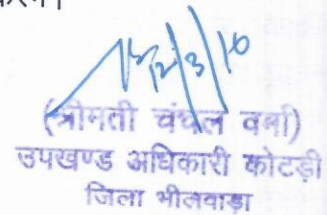 12/3/10
(श्रीमती चंचल वर्मा)
उपखण्ड अधिकारी कोटड़ी
जिला भीलवाड़ा